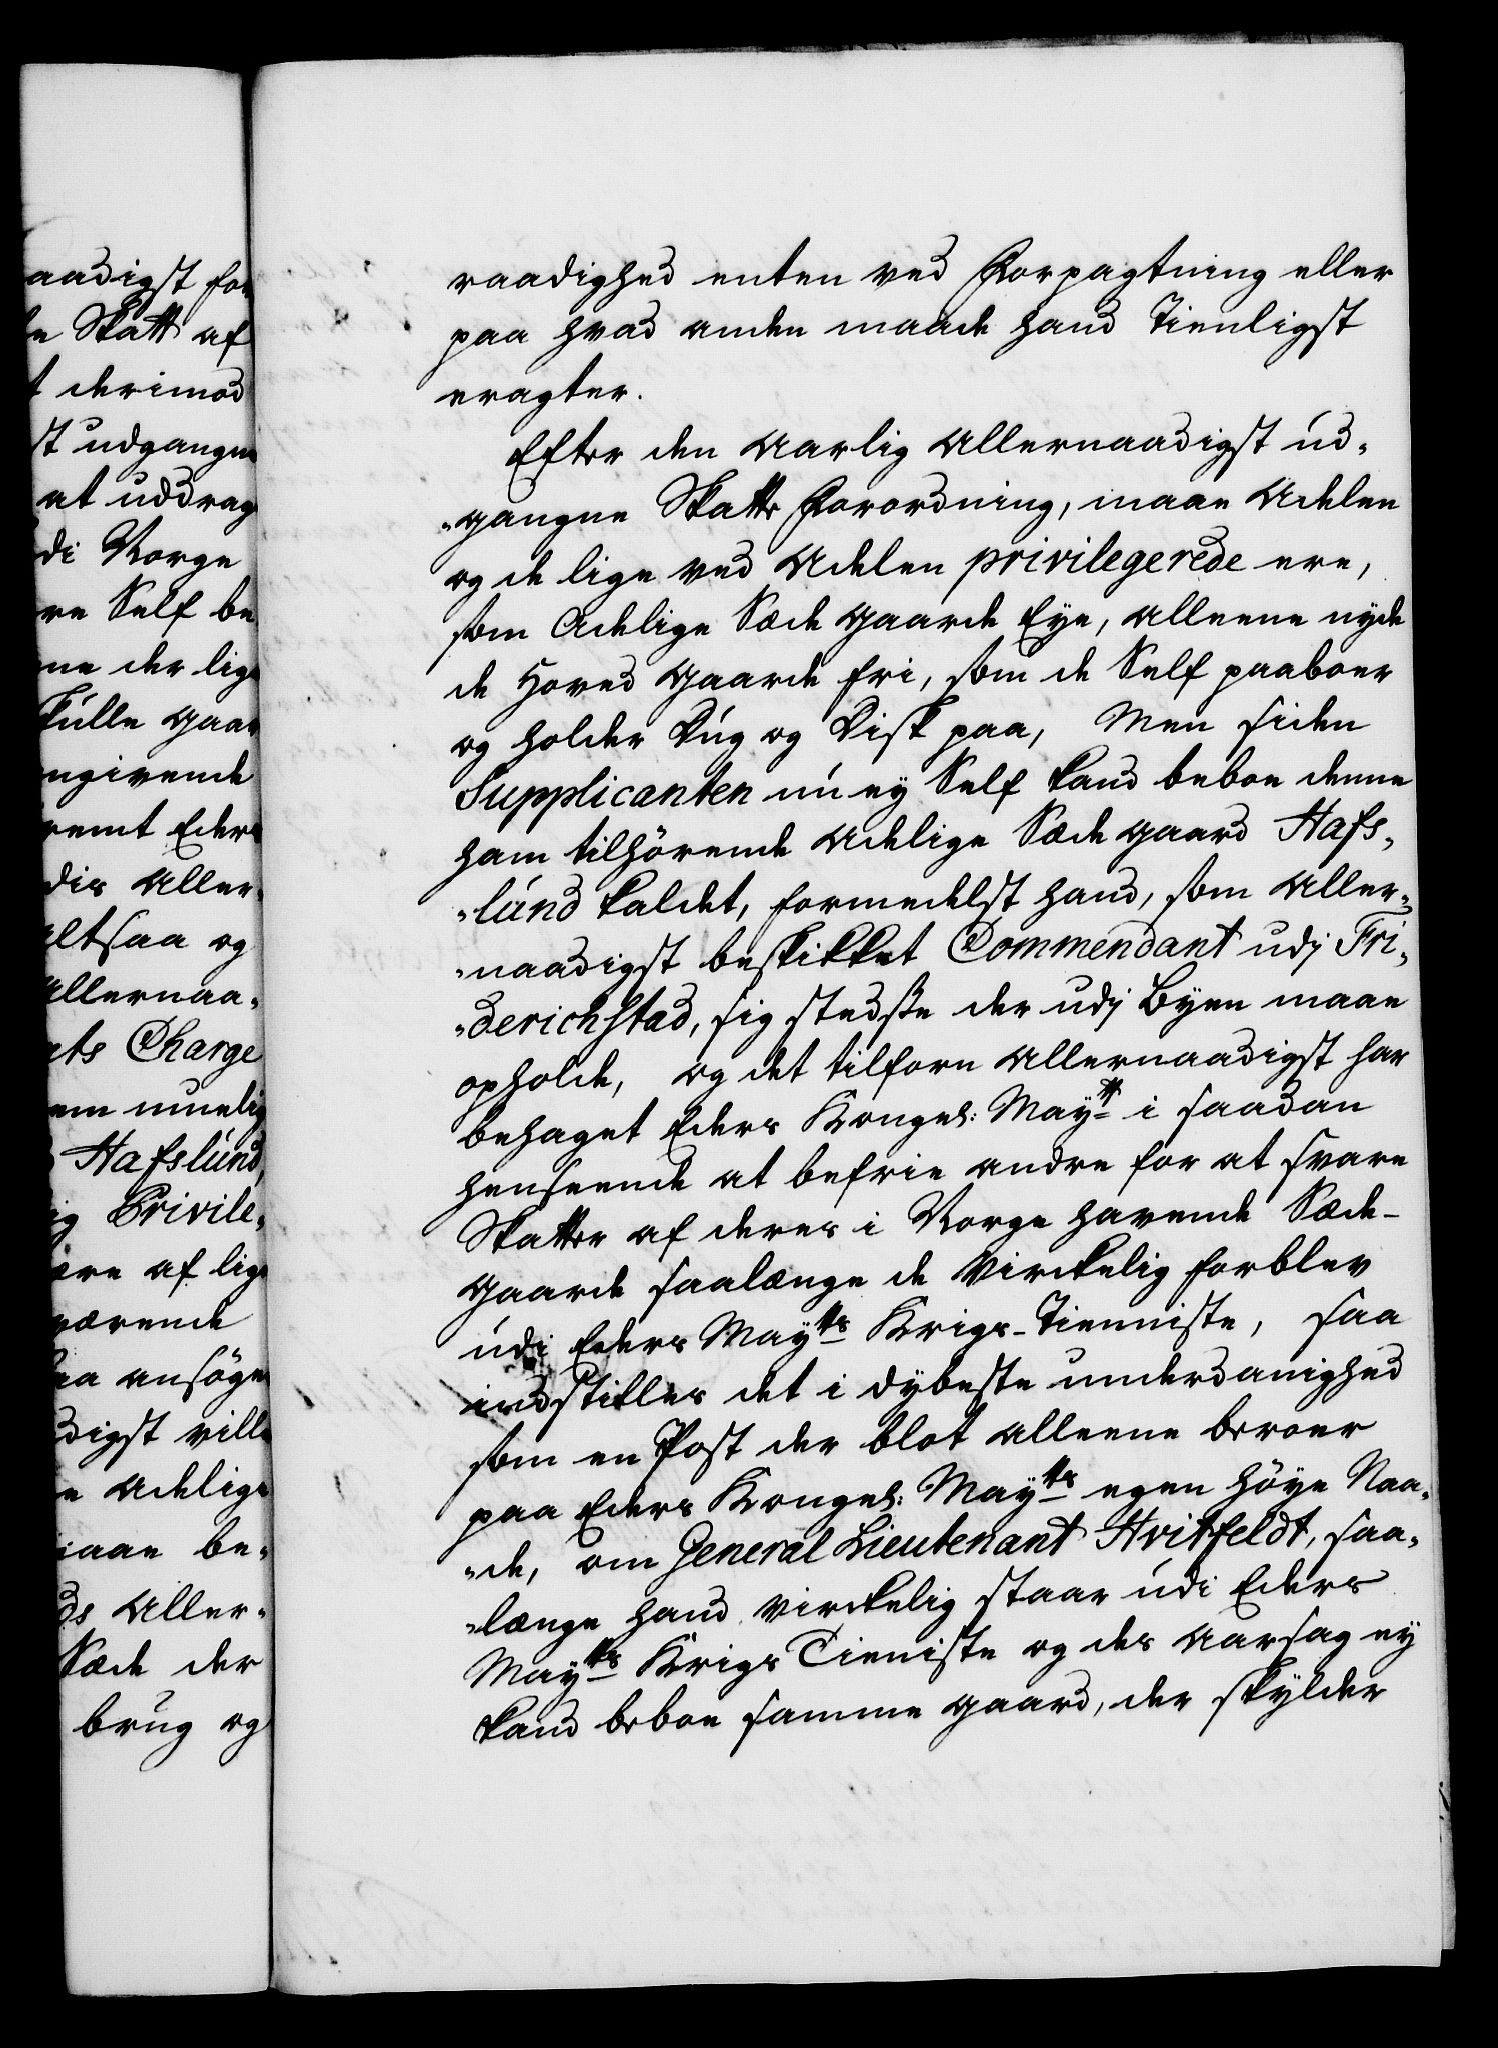 aadigst for
e Skatt af
t derimod
st udgangne
at uddrag
di Norge
re Self be
ne der lige
kulle gaar
ngivende
remt Eders
dis Aller-
altsaa og
Allernaa-
ets Charge
em muelig
Hafslund,
ig Privile-
ere af lige
værende
aa ansøge
digst ville
e Adelige
maae be-
ds Aller-
Sæde der
brug og
raadighed enten ved Forpagtning eller
paa hvad anden maade hand Tienligst
eragter.
Efter den Aarlig Allernaadigst ud-
-gangne Skatte Forordning, maae Adelen
og de lige ved Adelen privilegerede ere,
som Adelige Sæde Gaarde Eye, Alleene nyde
de Hoved Gaarde fri, som de Self paaboer
og holder Dug og Disk paa, Men siden
Supplicanten nu ey Self kand beboe denne
ham tilhörende Adelige Sæde gaard Hafs-
-lund kaldet, formedelst hand, som Aller-
-naadigst beskikket Commendant udj Fri-
-derichstad, sig stedsse der udj Byen maae
opholde, og det tilforn Allernaadigst har
behaget Eders Kongel: Maytt i saadan
henseende at befrie andre for at svare
Skatter af deres i Norge havende Sæde-
Gaarde saalænge de Virckelig forblev
udi Eders Maytts Krigs-Tienniste, saa
indstilles det i dybeste underdanighed
som en Post der blot Alleene beroer
paa Eders Kongel: Maytts egen höye Naa-
-de, om General Lieutenant Hvitfeldt, saa-
-længe hand virckelig staar udi Eders
Maytts Krigs Tieniste og des Aarsag ey
kand beboe samme gaard, der skylder